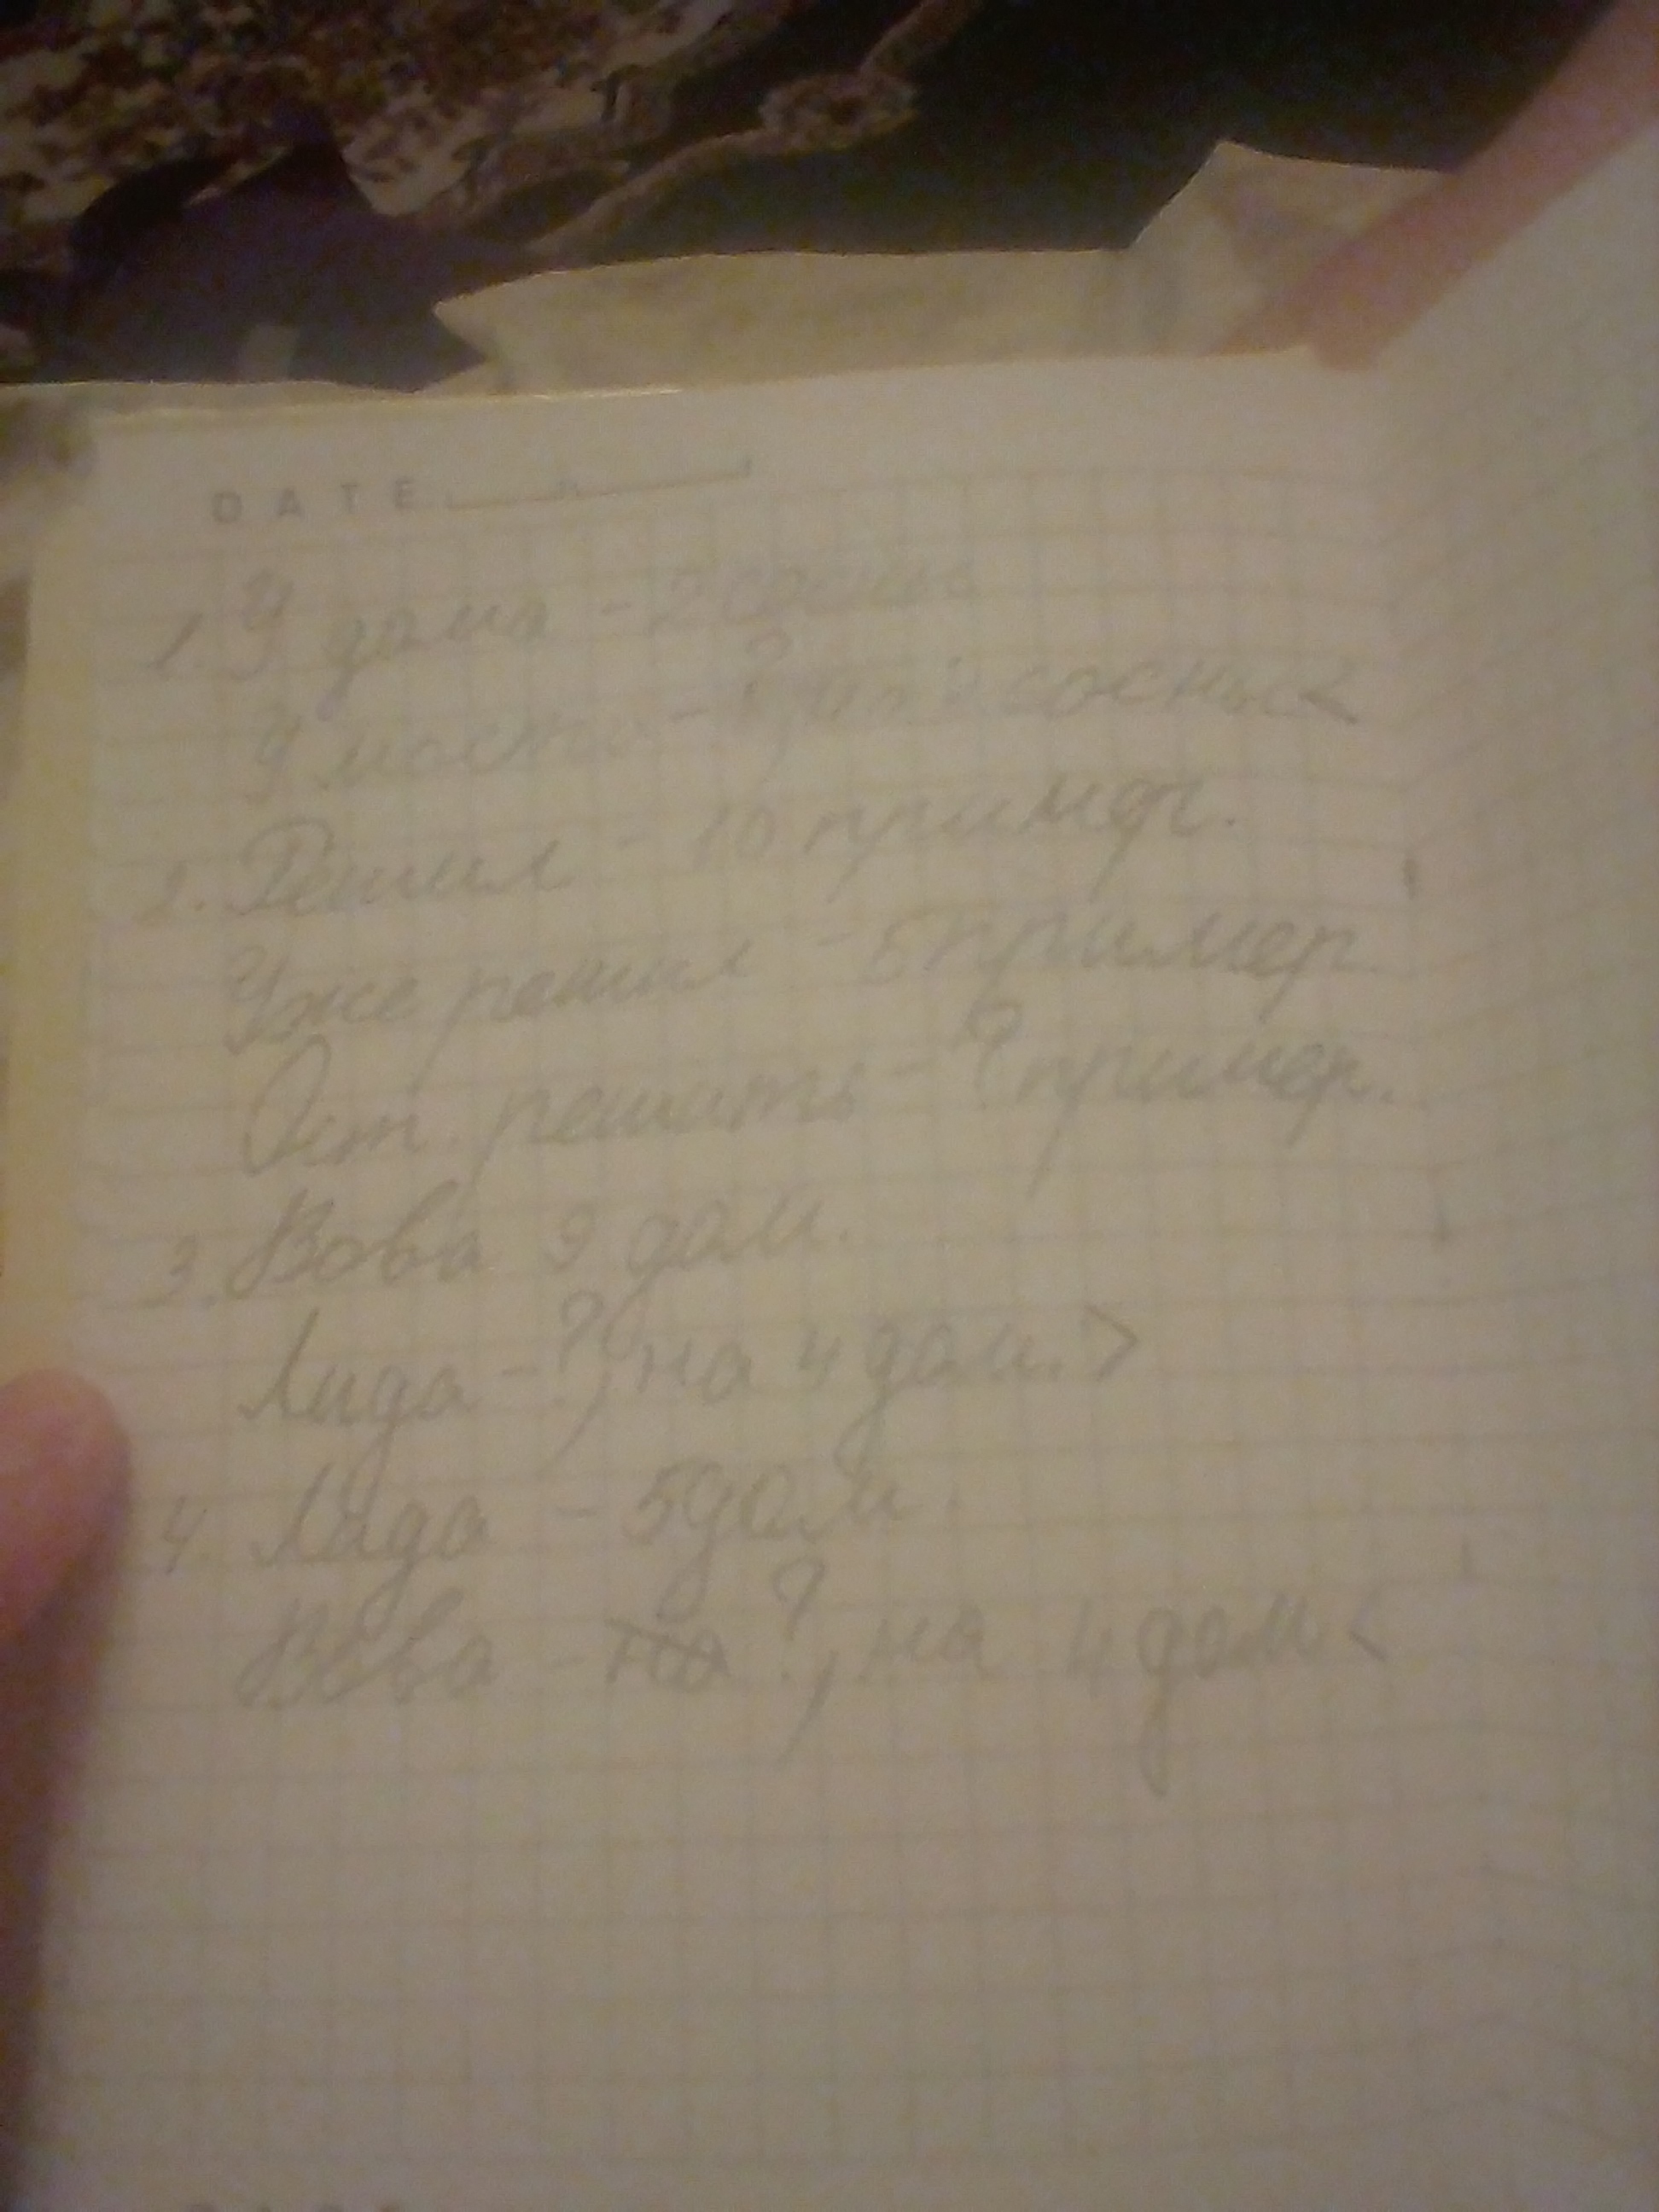 DATE
1. У дома - 2 сосны
У моста - ?, на сосны <
2. Решил - 10 пример.
Уже решил - 5 пример
Ост. решать - ? пример.
3. Вова 9 дом.
Лида - ?, на 4 дом. >
4. Лида - 5 дом.
Вова - ?, на 4 дом <